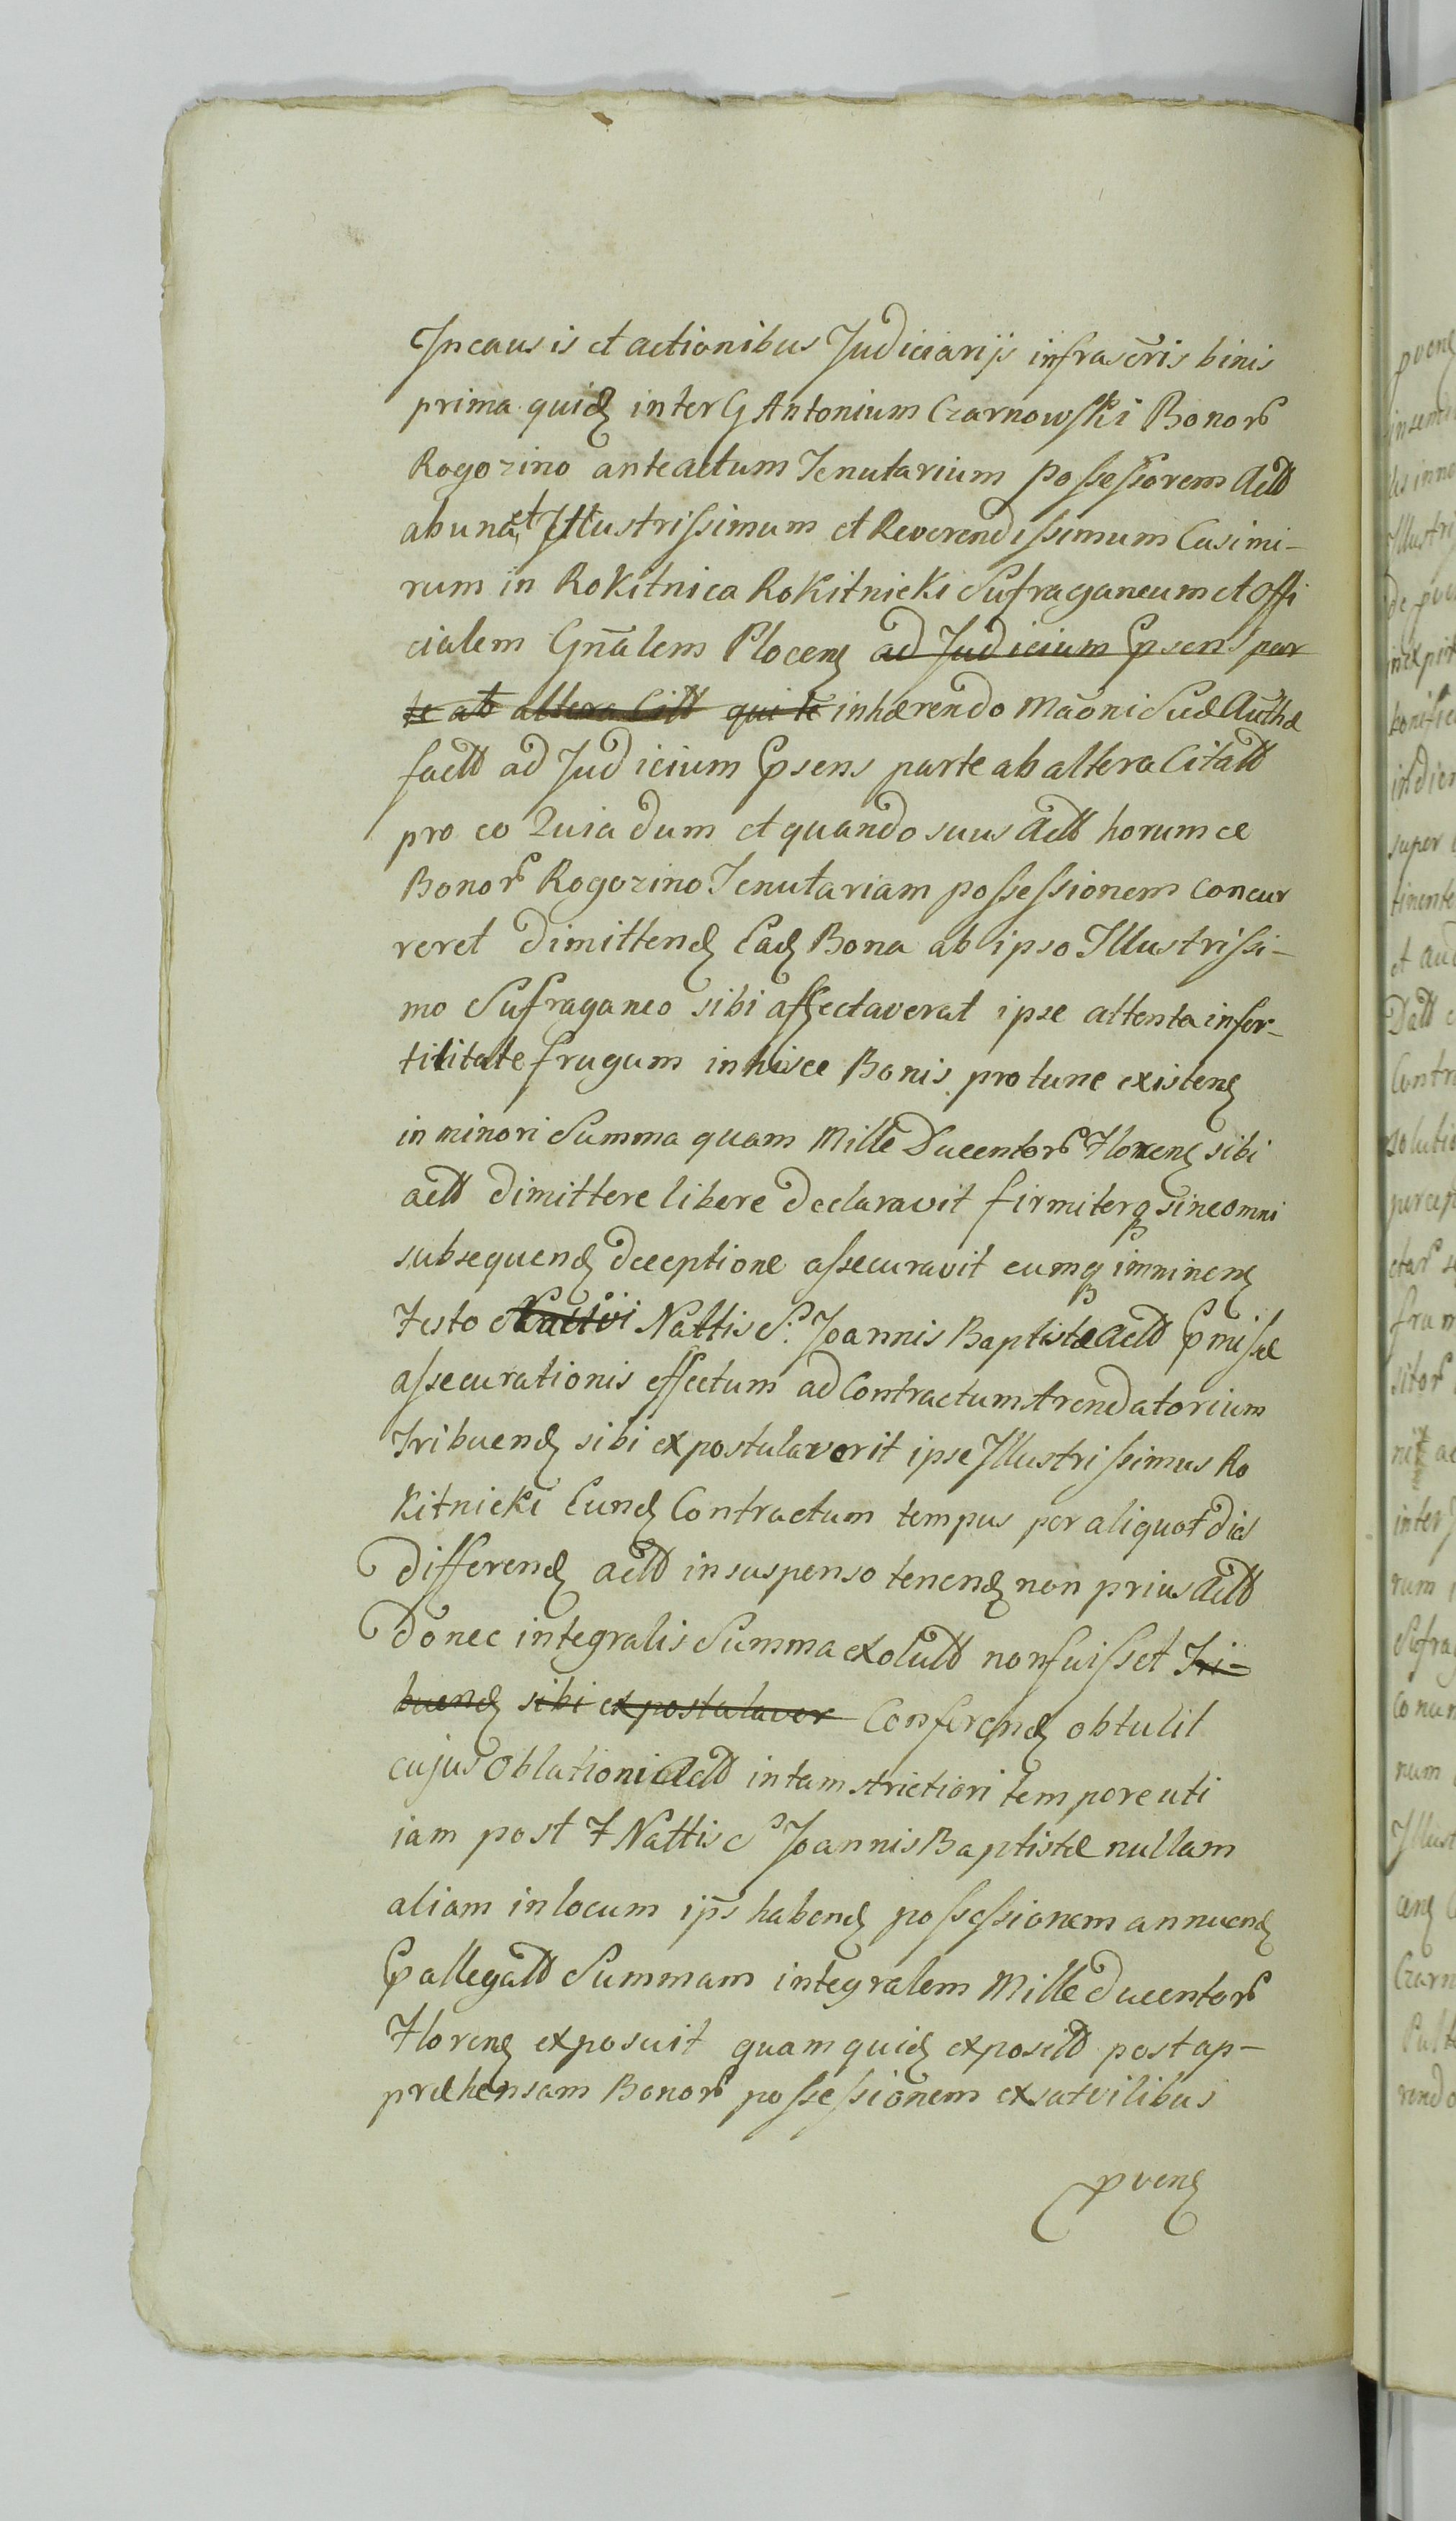 In causis et actionibus Judiciarijs infrascris binis
prima quid inter G Antonium Czarnowski Bonor
Rogozino anteactum Tenutarium possessorem Act
ab una et Illustrissimum et Reverendissimum Casimi-
rum in Rokitnica Rokitnicki Sufraganeum et Offi
cialem Gnalem Plocen ad Judicium Psens par
te ab altera Citt qui te inhærendo Maoni Suæ Authæ
fact ad Judicium Psens parte ab altera Citatt
pro eo Quia dum et quando suus Act horumce
Bonor Rogozino Tenutariam possessionem concur
reret dimittend Ead Bona ab ipso Illustrissi-
mo Sufraganeo sibi affectaverat ipse attenta infer-
tilitate frugum inhisce Bonis pro tunc existen
in minori Summa quam Mille Ducentor Floren sibi
act dimittere libere declaravit firmiterq sine omni
subsequend deceptione assecuravit cumq imminen
Festo Nattis S. Joannis Baptistæ Act Pmissæ
assecurationis effectum ad Contractum Arendatorium
Tribuend sibi expostulaverit ipse Illustrissimus Ro
kitnicki Eund Contractum tempus per aliquot dies
differend act in suspenso tenend non prius Act
donec integralis Summa exolutt non fuisset Tri-
buend sibi expostulaver Conferend obtulit
cujus Oblationi Act in tam strictiori tempore uti
iam post F Nattis S Joannis Baptistæ nullam
aliam in locum ips habend possessionem annuend
Pallegatt Summam integralem Mille ducentor
Floren exposuit quam quid expositt post ap-
præhensam Bonor possessionem exsatvilibus
pven